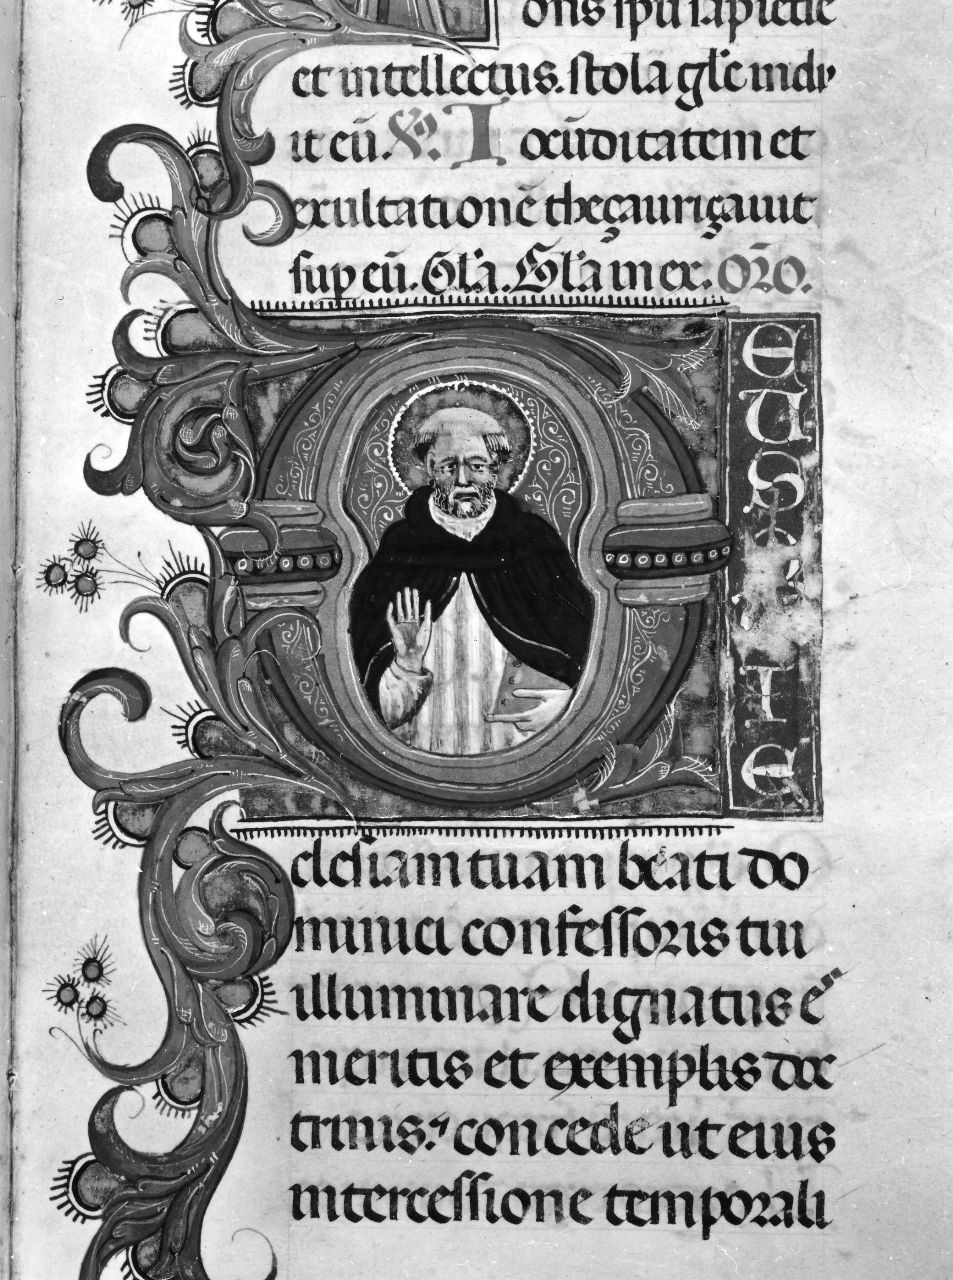 onis spū sapiētie
et intellectus. stola gl'e indu
it eū. V. Iocūditatem et
exultationē theçauriçauit
sup eū. Gl'a. Gl'a in ex. ORO.
DEUS
QUI
TE
cclesiam tuam beati do
minici confessoris tui
illuminare dignatus ē
meritis et exemplis doc
trinis: concede ut eius
intercessione temporali